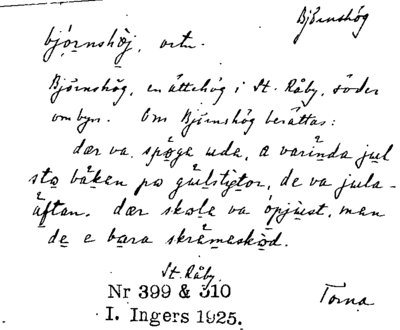 Björnshög
bjǫrnshöj, ortn.
Björnshög, en ättehög i St. Råby, söder
om byn. Om Björnshög berättas:
dær va spøga uda, a varinda jul
sto båkan po gulstytor, de va jula-
åftan. dær skole va opjust, man
de e bara skråmaskod.
St. Råby
Nr 399 & 310
I. Ingers 1925.
Torna